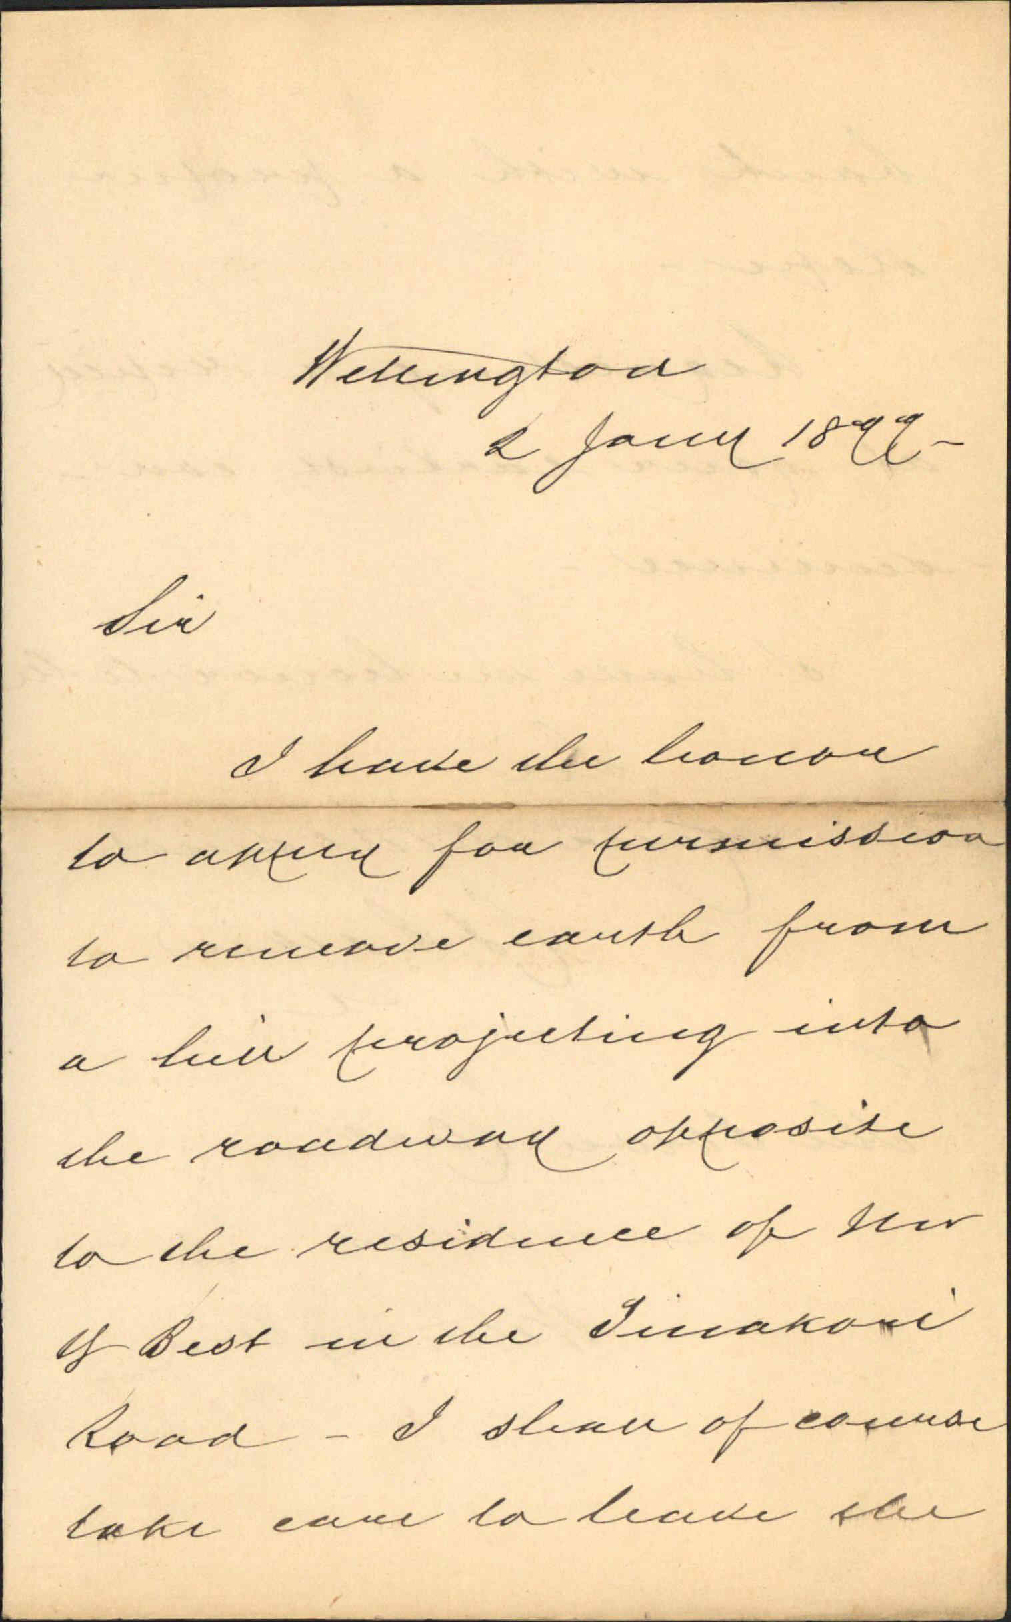 Wellington
2 Jany 1899 -
Sir
I have the honor
to apply for permission
to remove earth from
a hill projecting into
the roadway opposite
to the residence of Mr
Best in the Tinakori
Road - I shall of course
take care to leave the